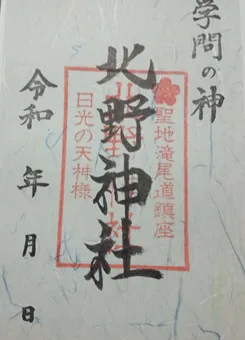 学問の神
北野神社
聖地滝尾道鎮座
北野神社
日光の天神様
令和 年 月 日